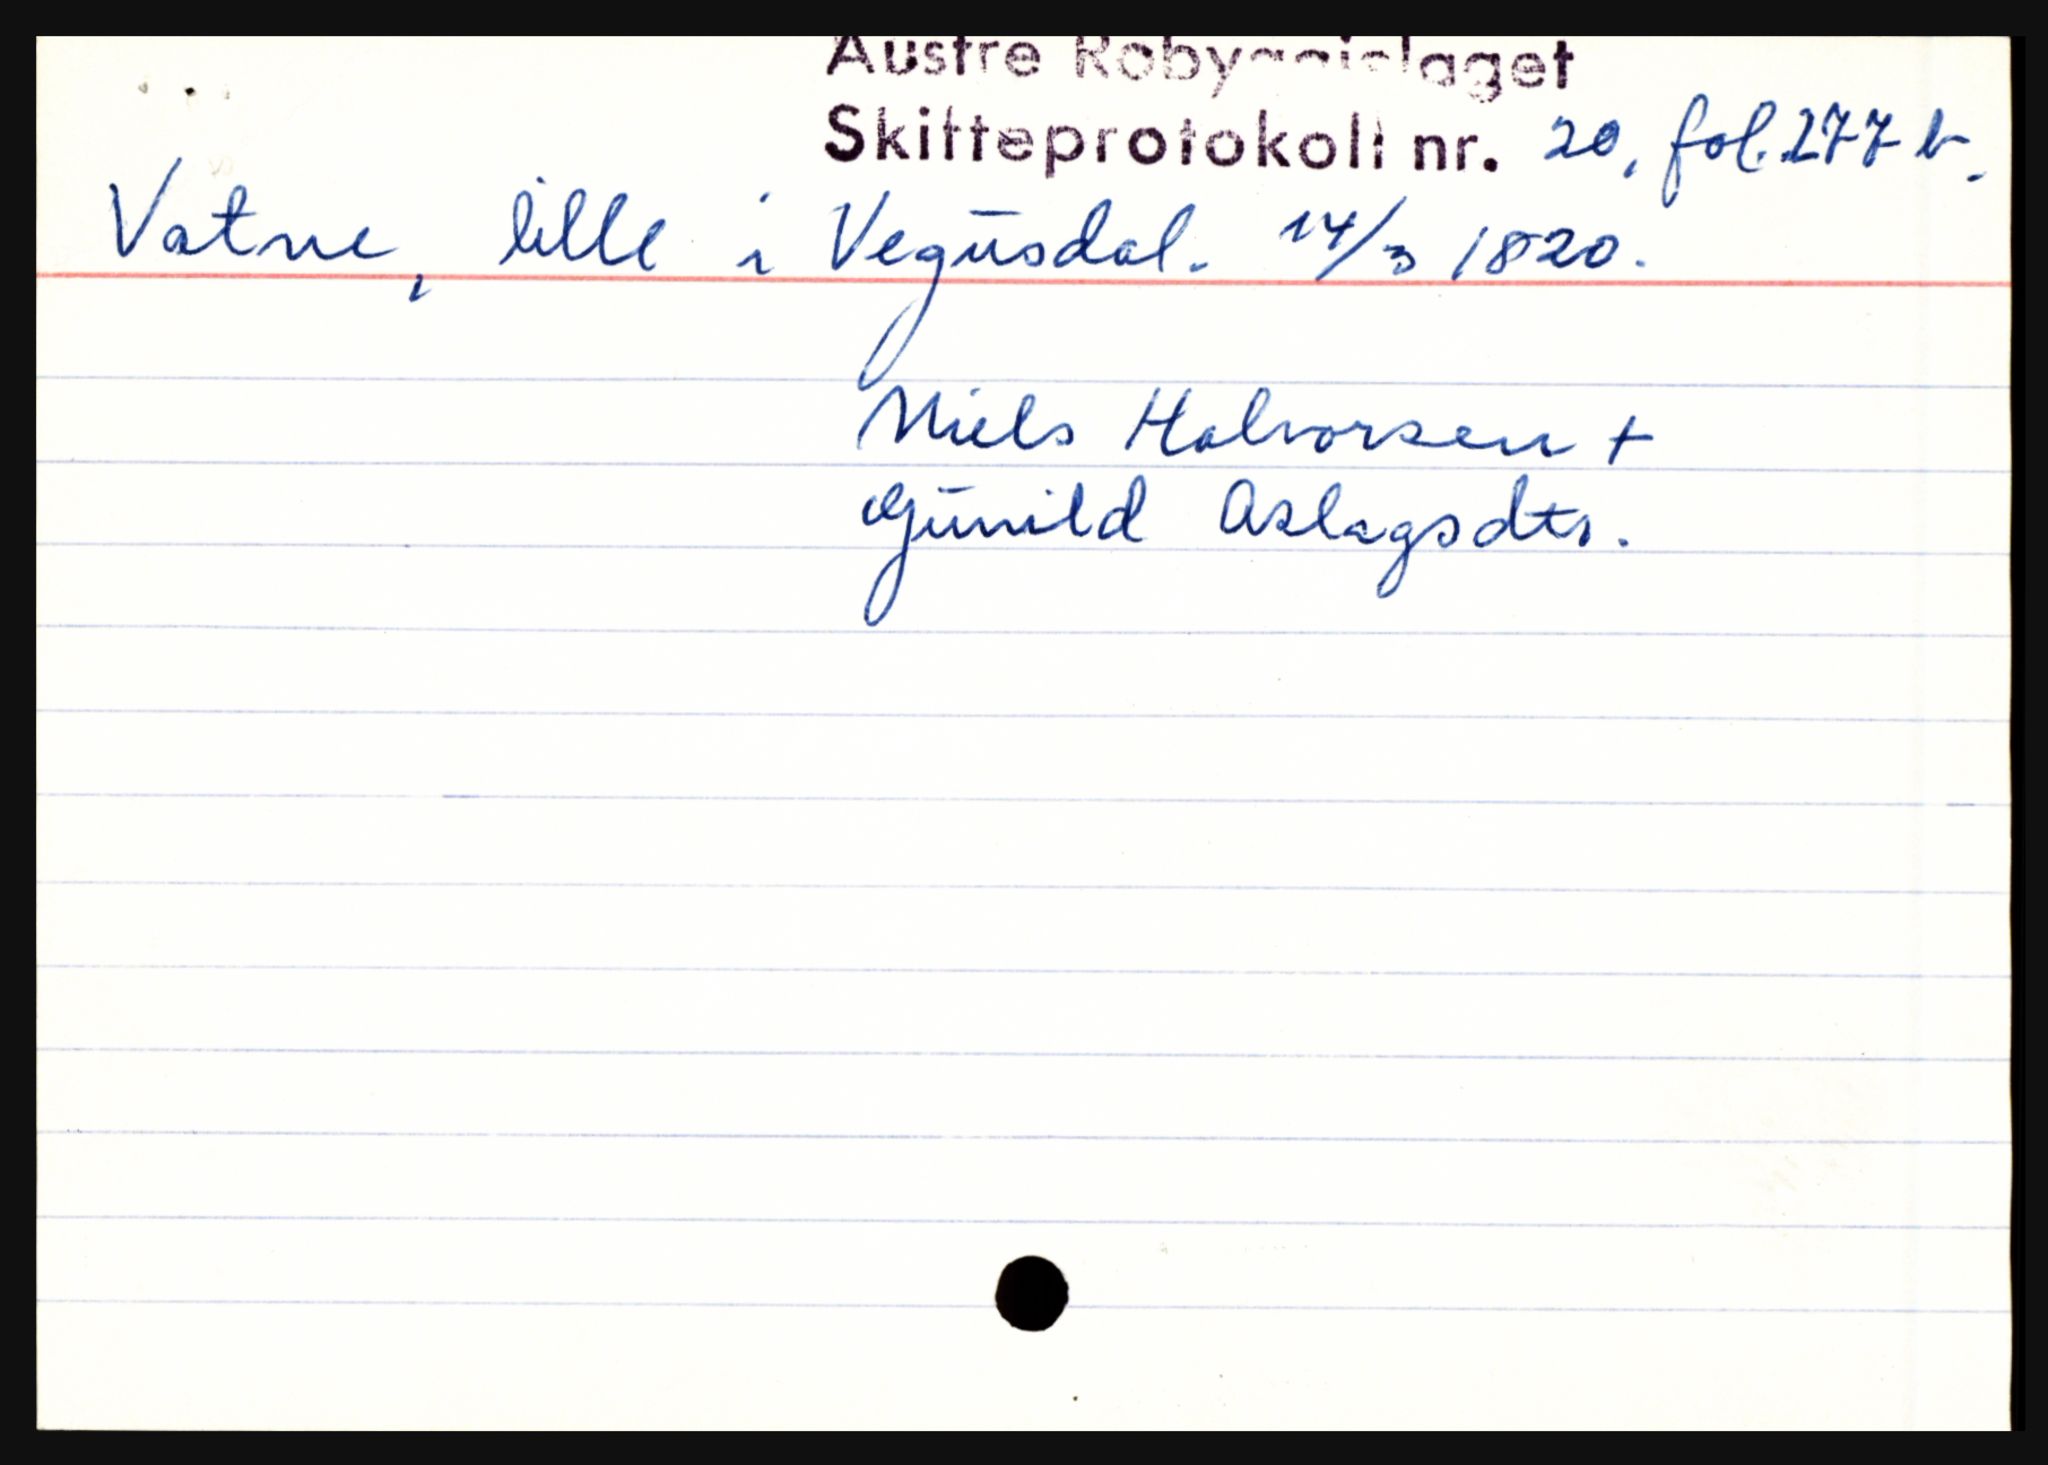 Austre Robyggjelaget
Skifteprotokoll nr. 20, fol. 277 b.
Vatne, lille i Vegusdal. 14/3 1820.
Niels Halvorsen +
Gunild Aslagsdtr.